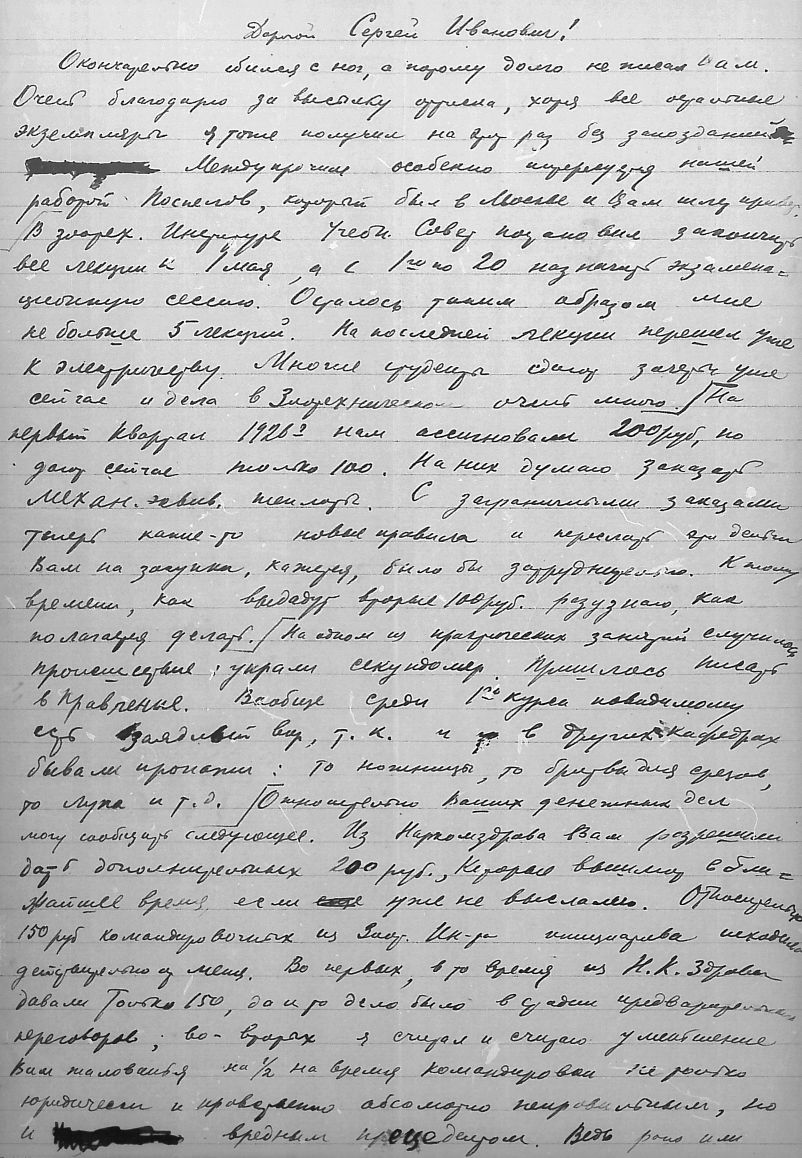 Дорогой Сергей Иванович!
Окончательно сбился с ног, а потому долго не писал Вам.
Очень благодарю за высылку оттиска, хотя все остальные
экземпляры я тоже получил на этот раз без запозданий
Между прочим особенно интересуется нашей
работой Поспелов, который был в Москве и Вам шлет привет.
[В зоотех. Институте Учебн. Совет постановил закончить
все лекции к 1 мая, а с 1го по 20 назначить экзамена=
ционную сессию. Осталось таким образом мне
не больше 5 лекций. На последней лекции перешел уже
к электричеству. Многие студенты сдают зачеты уже
сейчас и дела в Зоотехническом очень много.] [На
первый квартал 1926 г нам ассигновали 200 руб, но
дают сейчас только 100. На них думаю заказать
механ. эквив. теплоты. С заграничными заказами
теперь какие-то новые правила и переслать эти деньги
Вам на закупки, кажется, было бы затруднительно. К тому
времени, как выдадут вторые 100 руб. разузнаю, как
полагается делать. [На одном из практических занятий случилось
происшествие: украли секундомер. Пришлось писать
в Правление. Вообще среди 1го курса повидимому
есть заядлый вор, т. к. и в других кафедрах
бывали пропажи: то ножницы, то бритва для срезов,
то лупа и т. д. [Относительно Ваших денежных дел
могу сообщить следующее. Из Наркомздрава Вам разрешили
дать дополнительных 200 руб., которые вышлют в бли=
жайшее время, если уже не выслали. Относительно
150 руб командировочных из Зоот. Ин-та инициатива исходила
действительно от меня. Во первых, в то время из Н. К. Здрава
давали только 150, да и то дело было в стадии предварительных
переговоров; во-вторых я считал и считаю уменьшение
Вам жалованья на 1/2 на время командировки не только
юридически и нравственно абсолютно неправильным, но
и вредным прецедентом. Ведь рано или